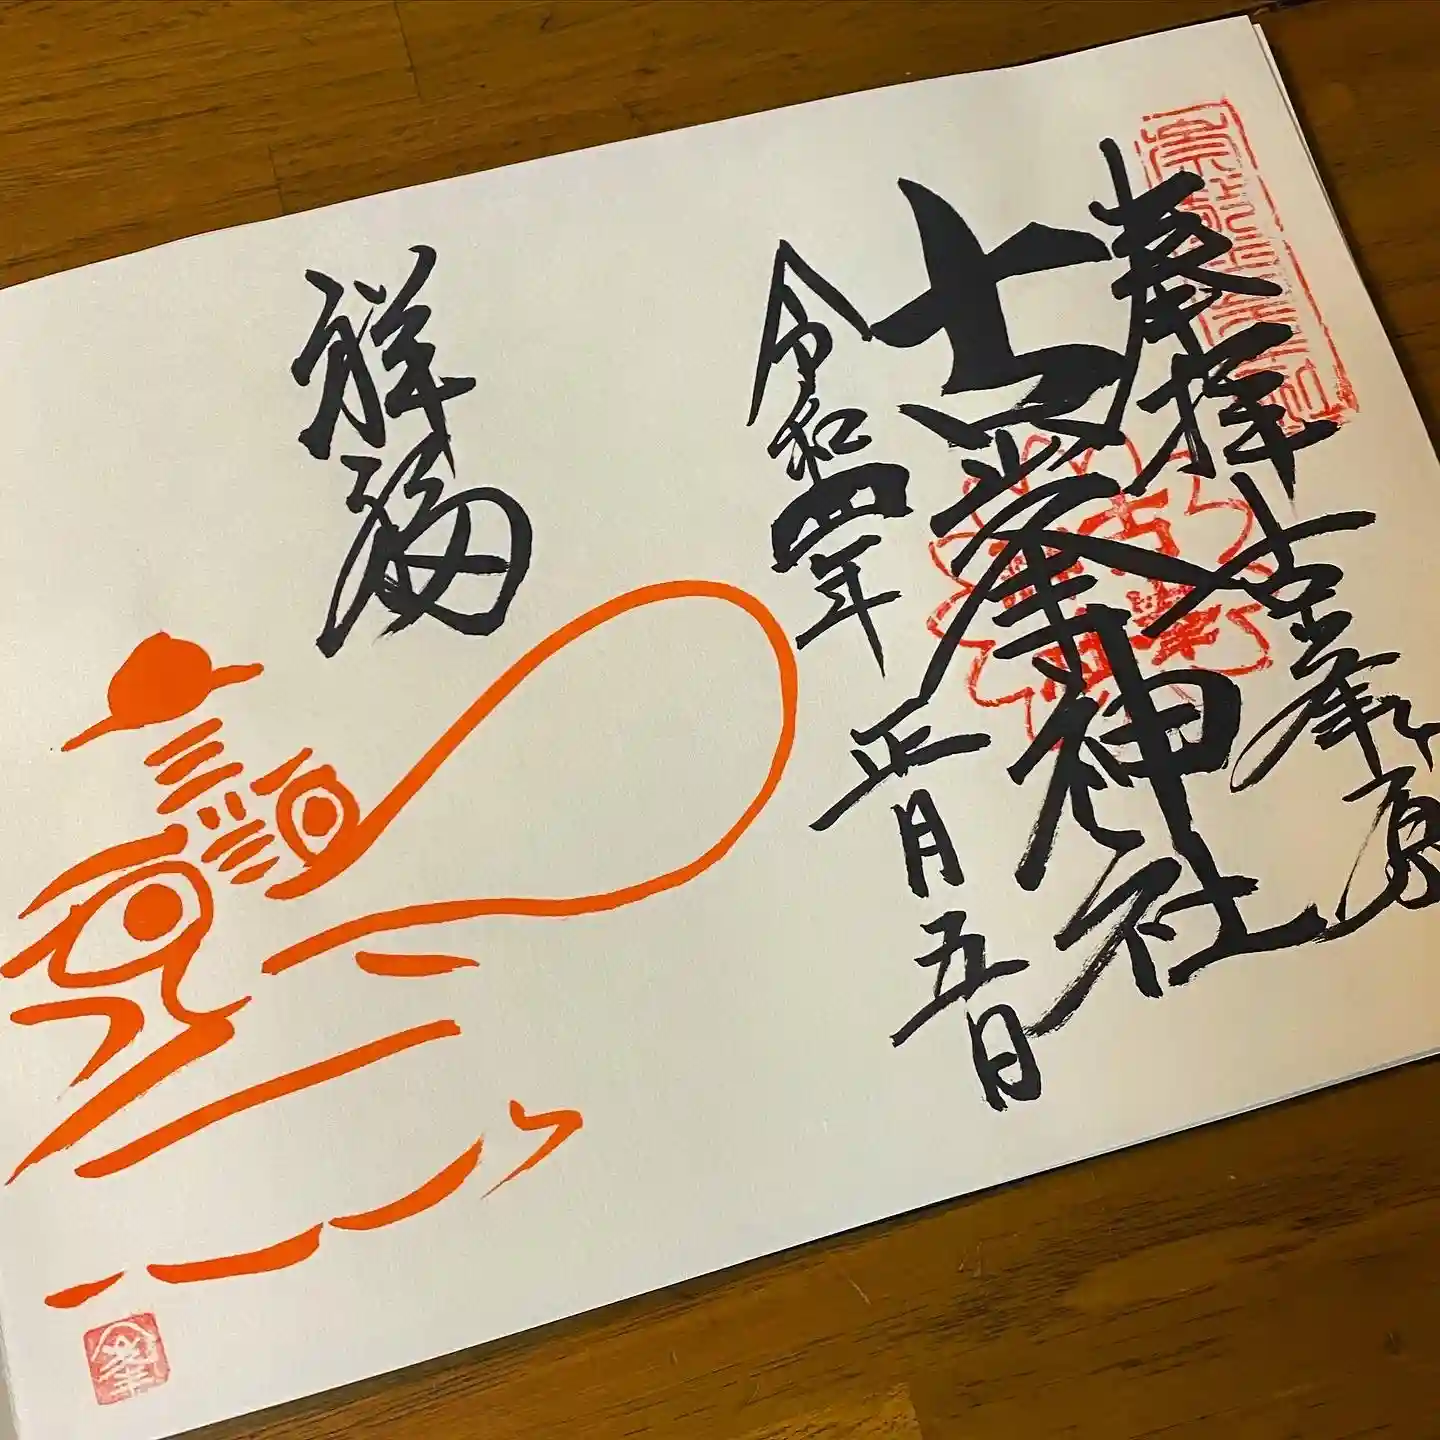 奉拝 古峯ヶ原
古峯神社
令和四年 正月五日
祥福